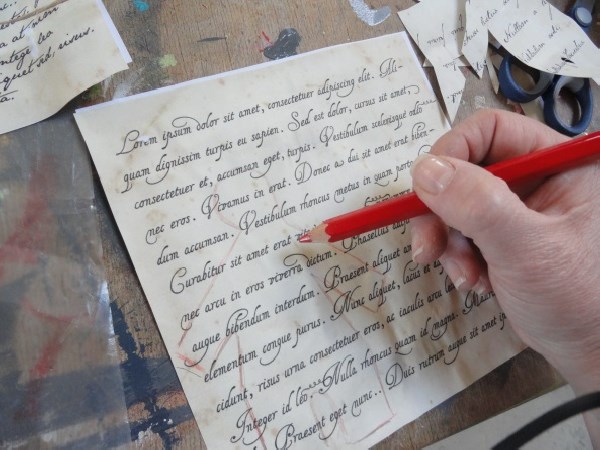 at nisi
Integer leo
aliquet ad, risus.
Lorem ipsum dolor sit amet, consectetuer adipiscing elit. Ali-
quam dignissim turpis eu sapien. Sed est dolor, cursus sit amet,
consectetuer et, accumsan eget, turpis. Vestibulum scelerisque odio
nec eros. Vivamus in erat. Donec ac dui sit amet erat biben-
dum accumsan. Vestibulum rhoncus metus in quam
Curabitur sit amet erat
nec arcu in eros viverra dictum. Phasellus
augue bibendum interdum. Praesent aliquet
elementum congue purus. Nunc aliquet, lacus et
cidunt, risus urna consectetuer eros, ac iaculis arcu
Integer id leo. Nulla rhoncus quam id magna.
Praesent eget nunc.. Duis rutrum augue sit amet